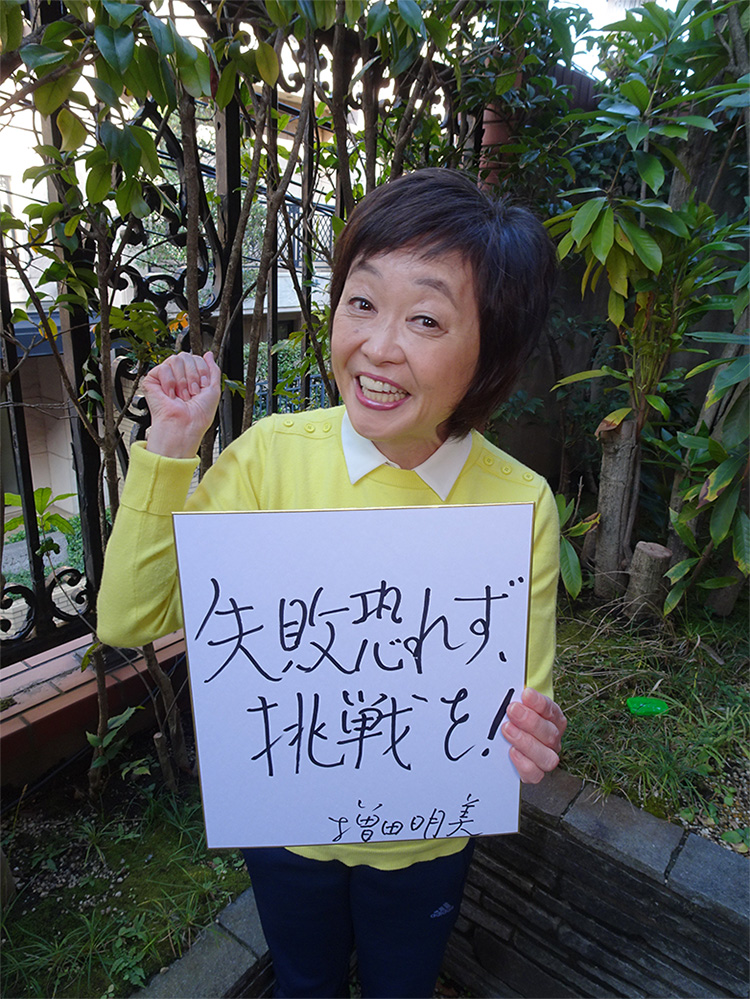 失敗恐れず、
挑戦を!
増田明美